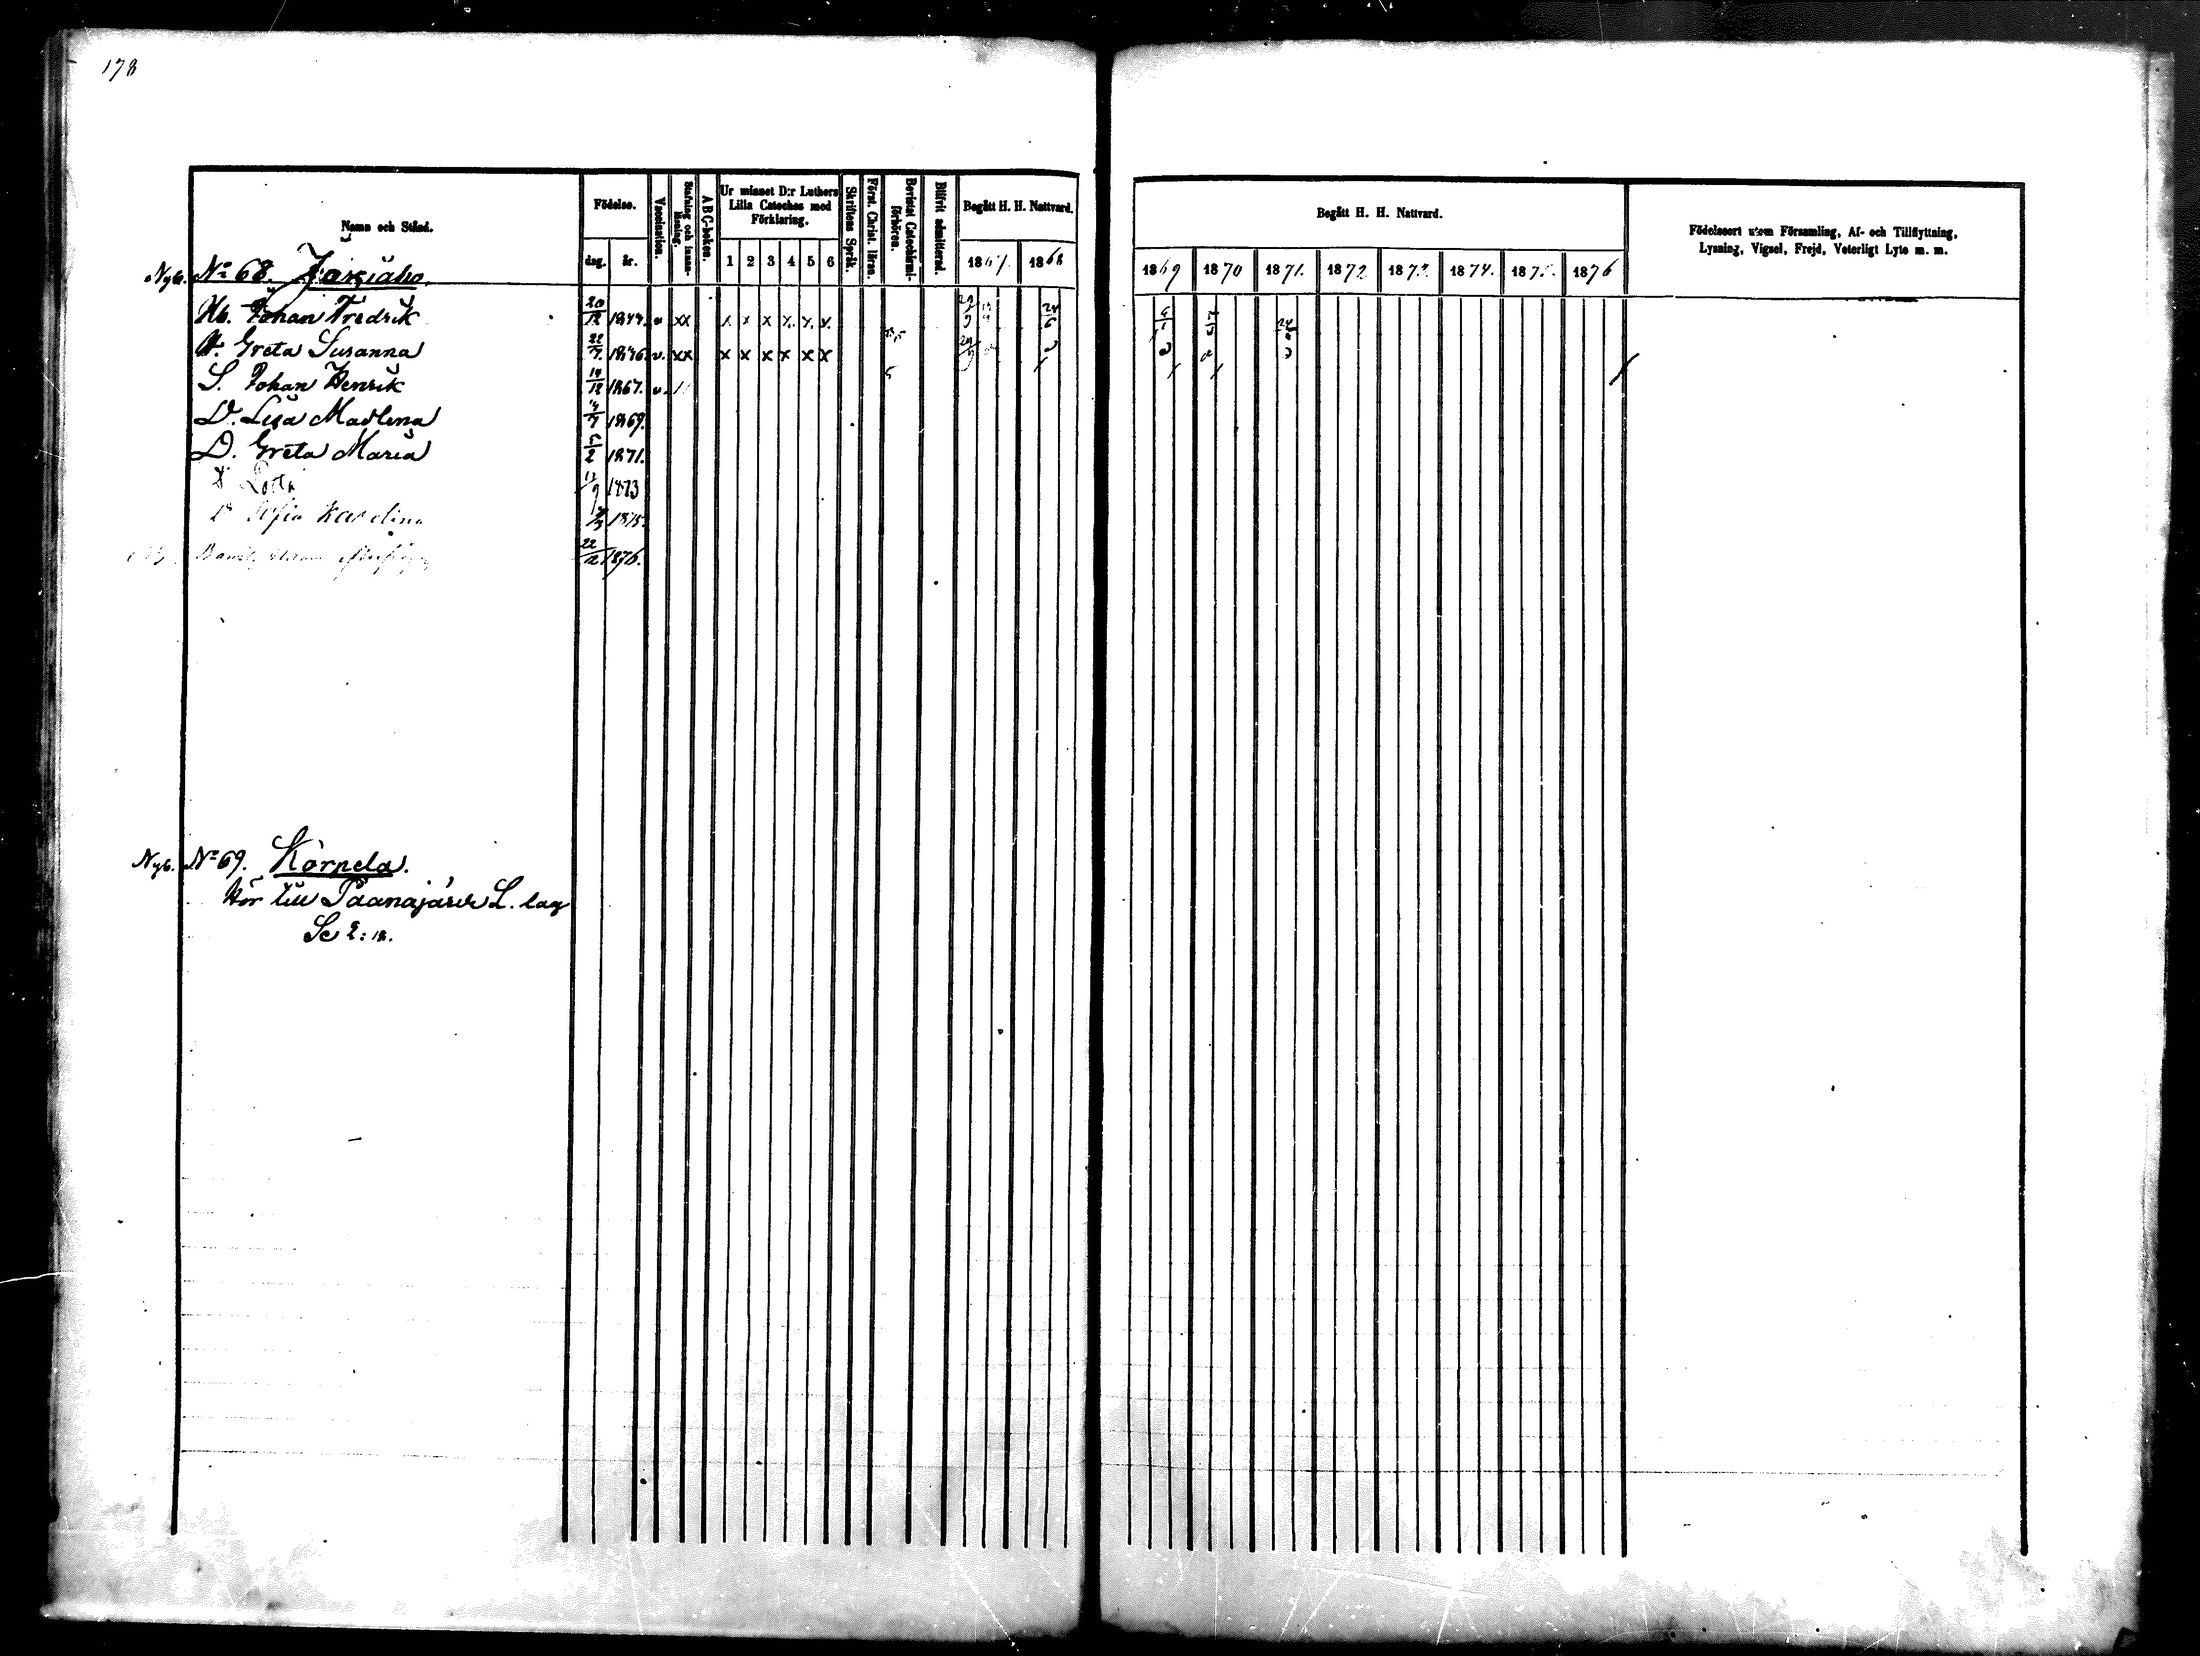 178
Namn och Stånd.
Födelse.
dag. år.
Vaccination.
Stafning och innan-läsning.
A B C-boken.
Ur minnet D:r Luthers Lilla Cateches med Förklaring.
1 2 3 4 5 6
Skriftens Språk.
Först. Christ. läran.
Bevistat Catechismi-förhören.
Blifvit admitterad.
Begått H. H. Nattvard.
1867. 1868
Begått H. H. Nattvard.
1869 1870 1871. 1872 1873. 1874. 1875. 1876
Födelseort utom Församling, Af- och Tillflyttning,
Lysning, Vigsel, Frejd, Veterligt Lyte m. m.
Nyb. No 68.
Johan Fredrik 20/12 1844. v xx x x x x. x. x. 24/6
H. Greta Susanna 22/7. 1846. v. xx x x x x x x
S. Johan Henrik 14/12 1867. v.
D. Lisa Madlena 4/7 1869.
D. Greta Maria 5/2 1871.
Lotta 1873
D Sofia Karolina 1875.
22/12 1876.
Nyb. No 69. Körpelä.
Hör till Paanajärvi L. lag
Se 2: 18.